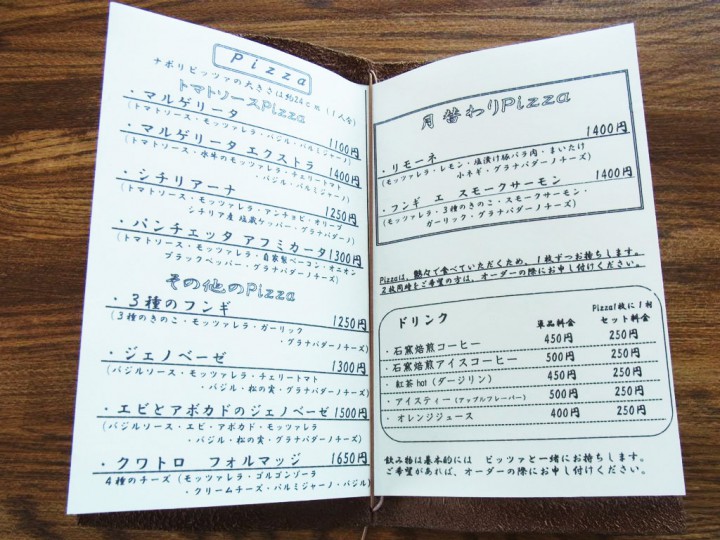 Pizza
ナポリピッツァの大きさは約24cm(1人分)
トマトソースPizza
・マルゲリータ 1100円
(トマトソース・モッツァレラ・バジル・パルミジャーノ)
・マルゲリータ エクストラ 1400円
(トマトソース・水牛のモッツァレラ・チェリートマト
・バジル・パルミジャーノ)
・シチリアーナ 1250円
(トマトソース・モッツァレラ・アンチョビ・オリーブ
シチリア産 塩蔵ケッパー・グラナパダーノ)
・パンチェッタ アフミカータ 1300円
(トマトソース・モッツァレラ・自家製ベーコン・オニオン
ブラックペッパー・グラナパダーノチーズ)
その他のPizza
・3種のフンギ 1250円
(3種のきのこ・モッツァレラ・ガーリック
・グラナパダーノチーズ)
・ジェノベーゼ 1300円
(バジルソース・モッツァレラ・チェリートマト
・バジル・松の実・グラナパダーノチーズ)
・エビとアボカドのジェノベーゼ 1500円
(バジルソース・エビ・アボカド・モッツァレラ
・バジル・松の実・グラナパダーノチーズ)
・クワトロ フォルマッジ 1650円
4種のチーズ(モッツァレラ・ゴルゴンゾーラ
・クリームチーズ・パルミジャーノ・バジル)
月替わりPizza
・リモーネ 1400円
(モッツァレラ・レモン・塩漬け豚バラ肉・まいたけ
小ネギ・グラナパダーノチーズ)
・フンギ エ スモークサーモン 1400円
(モッツァレラ・3種のきのこ・スモークサーモン・
ガーリック・グラナパダーノチーズ)
Pizzaは、熱々で食べていただくため、1枚ずつお持ちします。
2枚同時をご希望の方は、オーダーの際にお申し付けください。
ドリンク 単品料金 Pizza1枚に1杯 セット料金
・石窯焙煎コーヒー 450円 250円
・石窯焙煎アイスコーヒー 500円 250円
・紅茶hot(ダージリン) 450円 250円
・アイスティー(アップルフレーバー) 500円 250円
・オレンジジュース 400円 250円
飲み物は基本的には ピッツァと一緒にお持ちします。
ご希望があれば、オーダーの際にお申し付けください。